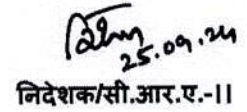 25.09.24
निदेशक/सी.आर.ए.-II